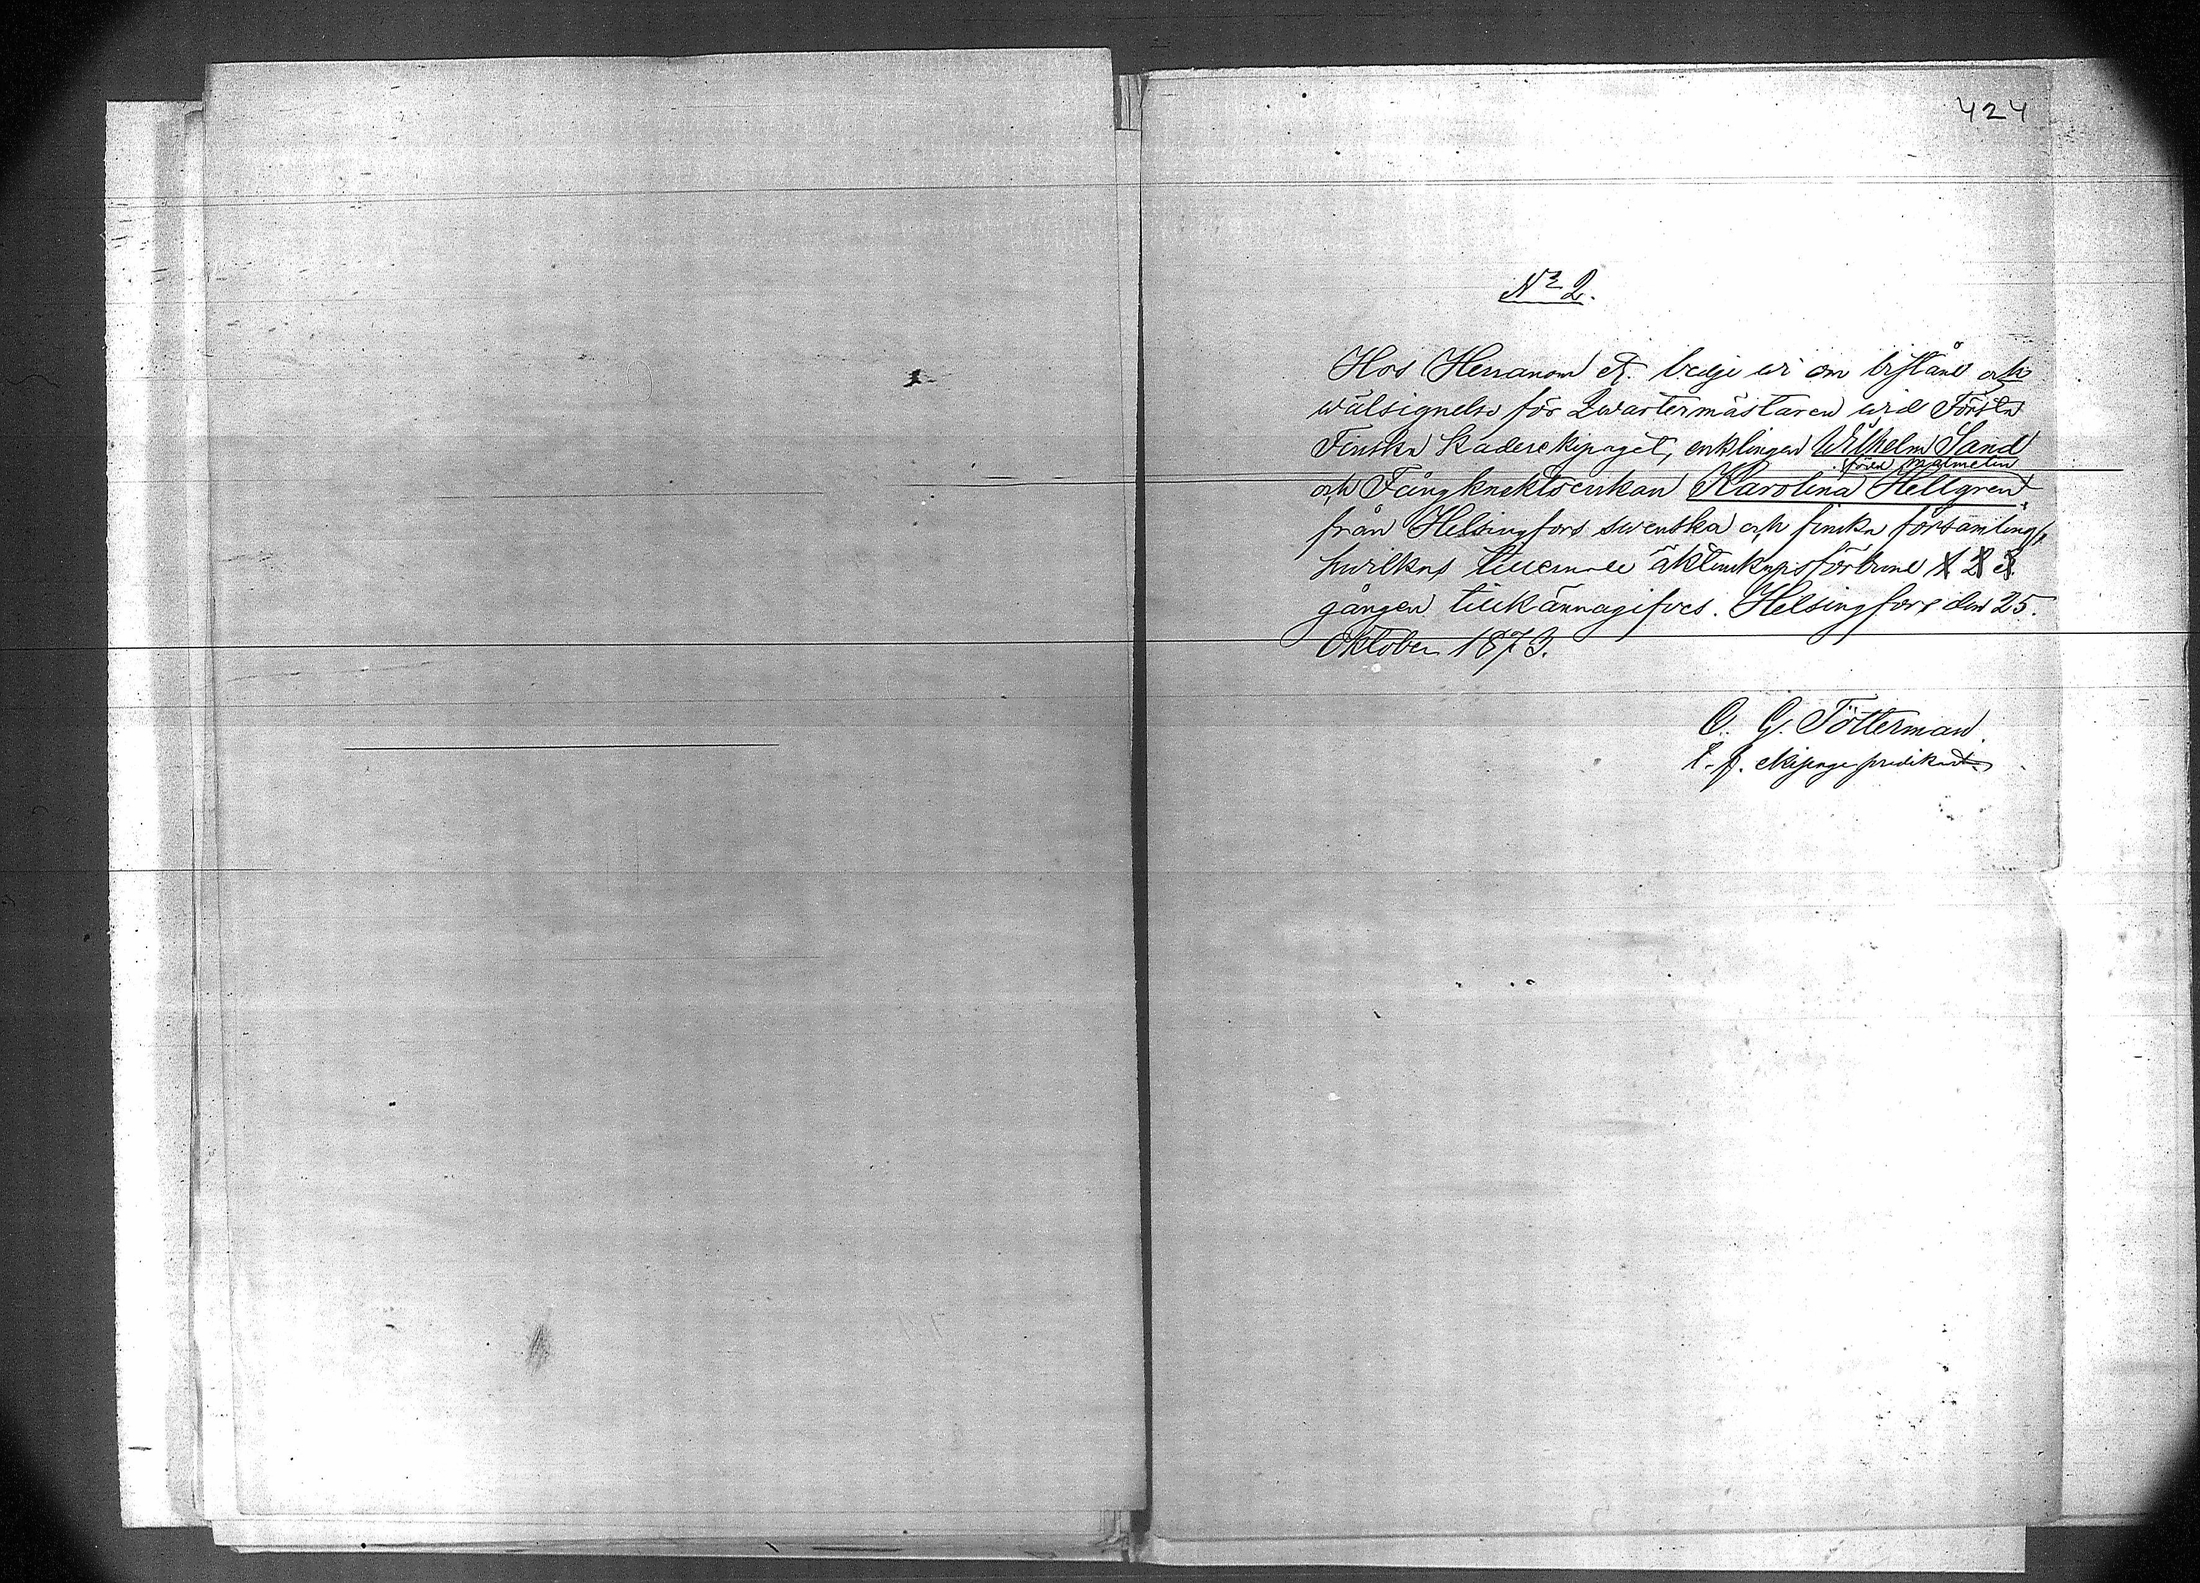 424
No 2.
Hos Herranom &. bedje wi om bistånd och
wälsignelse för Qwartermästaren wid Första
Finska kaderekipaget, enklingen Wilhelm Sand
född Malmelin
och Fångknektsenkan Karolina Hellgren,
från Helsingfors swenska och finska församling,
hwilkas tillernade äktenskapsförbund 1 2 3.
gången tillkännagifves. Helsingfors den 25.
Oktober 1873.
O. G. Tötterman.
t. f. ekipagepredikant